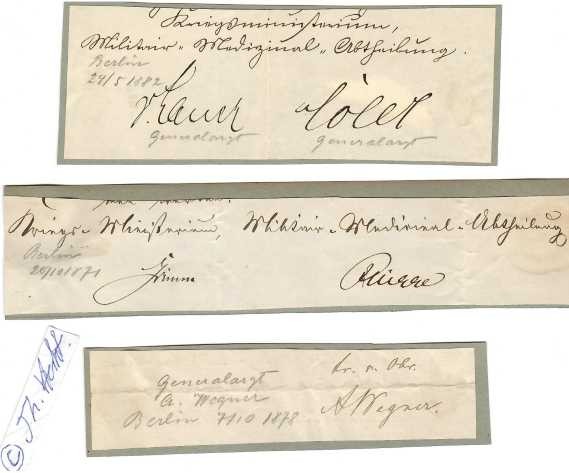 Kriegsministerium,
Militair-Medizinal-Abtheilung.
Berlin
24/5 1882
v. Lauer
Generalarzt Generalarzt
Kriegs-Ministerium, Militair-Medicinal-Abtheilung
Berlin
20/10 1871
Grimm
Generalarzt
A. Wegner
Berlin 7/10 1878
AWegner.
©